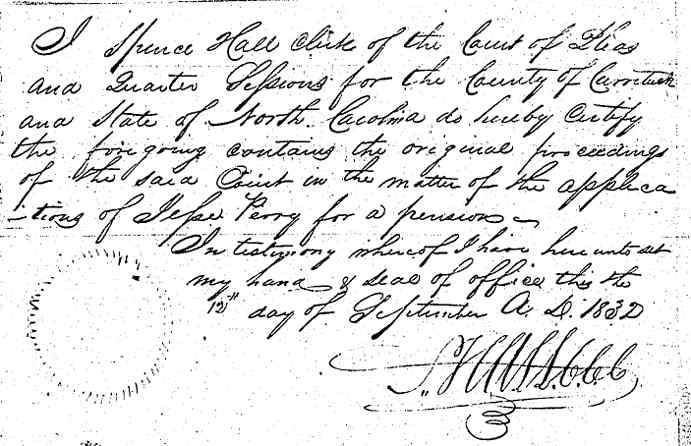 I Spence Hall Clerk of the Court of Pleas
and Quarter Sessions for the County of Currituck
and State of North Carolina do hereby Certify
the foregoing contains the original proceedings
of the said Court in the matter of the applica
-tions of Jesse Perry for a pension
In testimony whereof I have here unto set
my hand & seal of office this the
12th day of September A. D. 1832
S. Hall C.C.C.